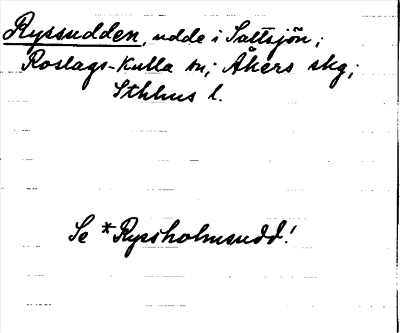 Ryssudden, udde i Saltsjön;
Roslags-Kulla sn; Åkers skg;
Sthlms l.
Se *Rysholmsudd!